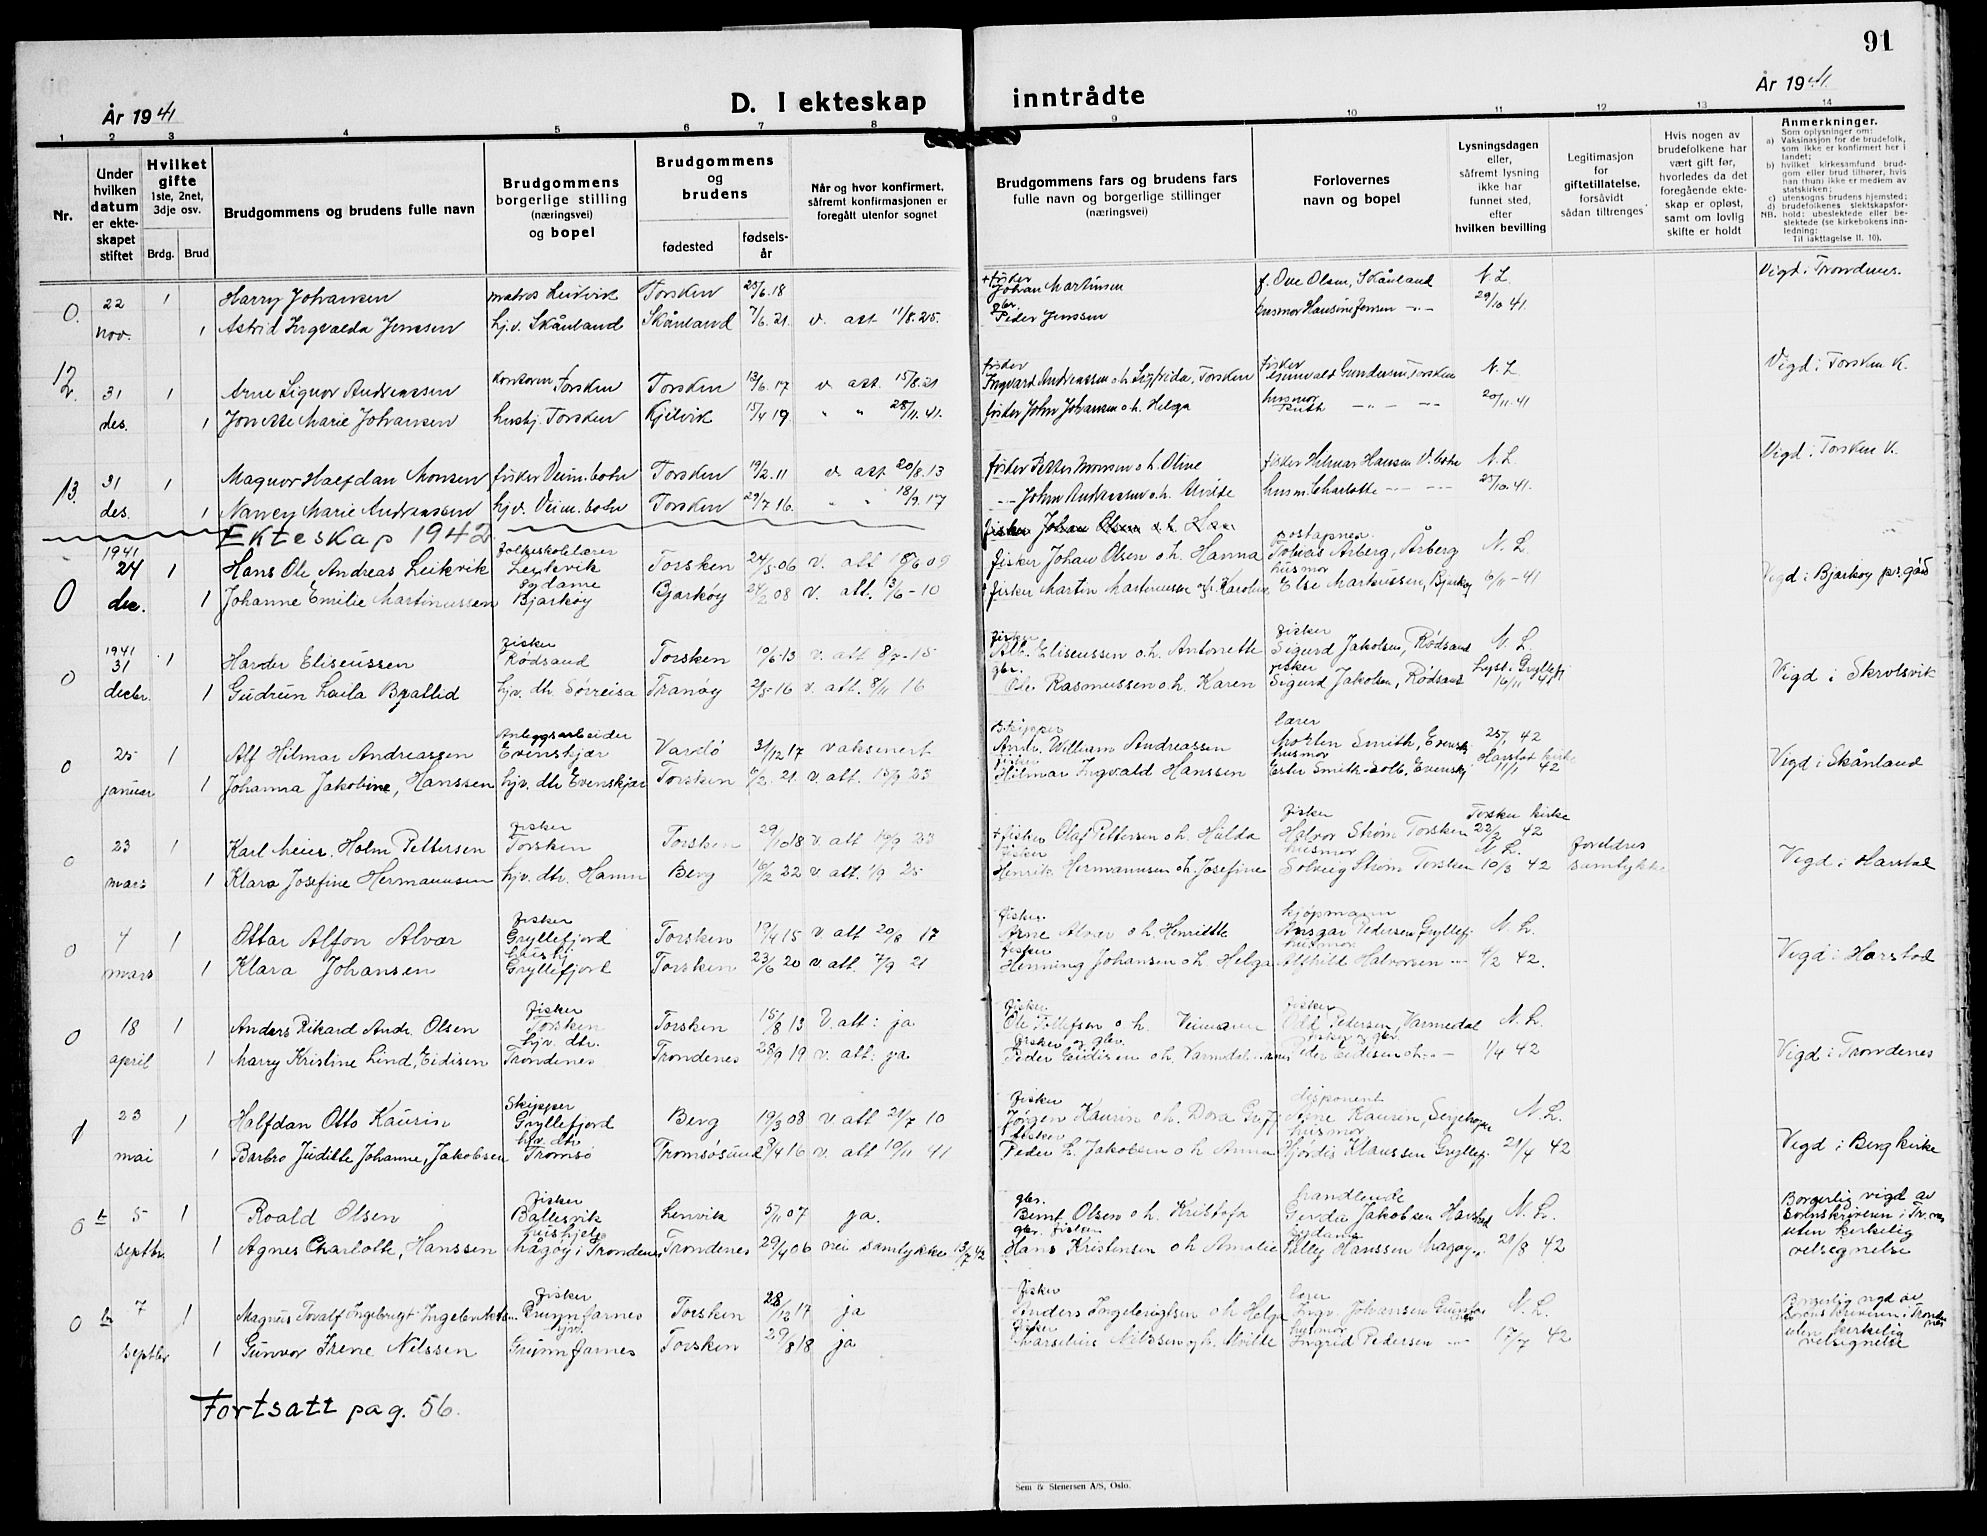 91
År 1941
D. I ekteskap inntrådte
År 1941
1 2 3 4 5 6 7 8 9 10 11 12 13 14
Nr.
Under hvilken datum er ekteskapet stiftet
Hvilket gifte 1ste, 2net, 3dje osv.
Brdg. Brud
Brudgommens og brudens fulle navn
Brudgommens borgerlige stilling (næringsvei) og bopel
Brudgommens og brudens
fødested
fødselsår
Når og hvor konfirmert, såfremt konfirmasjonen er foregått utenfor sognet
Brudgommens fars og brudens fars fulle navn og borgerlige stillinger (næringsvei)
Forlovernes navn og bopel
Lysningsdagen eller, såfremt lysning ikke har funnet sted, efter hvilken bevilling
Legitimasjon for giftetillatelse, forsåvidt sådan tiltrenges
Hvis nogen av brudefolkene har vært gift før, hvorledes da det foregående ekteskap er opløst, samt om lovlig skifte er holdt
Anmerkninger.
Som oplysninger om:
a) Vaksinasjon for de brudefolk, som ikke er konfirmert her i landet;
b) hvilket kirkesamfund brudgom eller brud tilhører, hvis han (hun) ikke er medlem av statskirken;
c) utensogns brudens hjemsted;
d) brudefolkenes slektskapsforhold: ubeslektede eller beslektede (se kirkebokens innledning:
NB. Til iakttagelse II. 10).
0. 22 1 Harry Johansen matros Leikvik Torsken 25/6.18 + fisker Johan Martinsen f. Ove Olsen, Skånland N. L. Vigd i Trondenes.
nov. 1 Astrid Ingvalda Jenssen hj.v. Skånland Skånland 7/6.21. v. att 11/8.25. gbr. Peder Jenssen husmor Hansine Jensen -"- 29/10 41.
12. 31 1 Arne Signor Andreassen kontorm Torsken Torsken 13/6.17 v. att. 15/8.21 fisker Ingvard Andreassen o.h. Sigfrida, Torsken fisker Gunvald Gundersen, Torsken N. L. Vigd i Torsken K.
des. 1 Jonette Marie Johansen hushj. Torsken Kjelvik 15/4 19. " " 28/11.41. fisker John Johansen o.h. Helga husmor Ruth -"- -"- 20/11.41
13. 31 1 Magnor Halfdan Monsen fisker Veim.botn Torsken 19/2.11 v. att. 20/8.13 fisker Petter Monsen o.h. Oline fisker Hilmar Hansen V.botn N. L. Vigd i Torsken K.
des. 1 Nancy Marie Andreassen hj.v. Veim.botn Torsken 29/7 16. " " 18/9.17 -"- John Andreassen o.h. husm. Charlotte -"- -"- 25/10.41.
Ekteskap 1942
fisker Johan Olsen o.h. Han
0 1941 24 1 Hans Ole Andreas Leikvik folkeskolelærer Leikvik Torsken 24/5-06 v. att 09 fisker Johan Olsen o.h. Hanna poståpner Tobias Årberg, Årberg N. L. Vigd i Bjarkøy pr.gård
dec. 1 Johanne Emilie Martinussen Bjarkøy Bjarkøy 24/2 08 v. att. 13/6-10 fisker Martin Martinussen og h. Karoline husmor Else Markussen, Bjarkøy 6/11-41
0 1941 31 1 Harder Eliseussen fisker Rødsand Torsken 10/6-13 v. att 8/7-15 fisker Alb. Eliseussen o.h. Antonette fisker Sigurd Jakobsen, Rødsand N. L. Vigd i Skrolsvik
decbr. 1 Gudrun Laila Brattlid hj.v. dtr. Sørreisa Tranøy 2/5-16 v. att. 8/11 16 gbr. Ole Rasmussen o.h. Karen fisker Sigurd Jakobsen, Rødsand Lyst i Gryllefj 16/11 41
0 25 1 Alf Hilmar Andreassen Anleggsarbeider Evenskjær Vardø 31/12 17 vaksinert Skipper Andr. William Andreassen lærer Morten Smith, Evenskj 25/1 42 Vigd i Skånland
januar 1 Johanna Jakobine, Hanssen hj.v. dtr Evenskjær Torsken 7/2. 21. v. att. 15/9 23 fisker Hilmar Ingvald Hanssen husmor Ester Smith-Solb., Evenskj Harstad kirke 11/1 42
0 23 1 Karl Meier Holm Pettersen fisker Torsken Torsken 29/10 18 v. att 19/9 33 + fisker Olaf Pettersen o.h. Hulda fisker Halvor Strøm Torsken Torsken kirke 22/2 42 foreldres Vigd i Harstad
mars 1 Klara Josefine Hermannsen hj.v. dtr. Hamn Berg 16/12 22 v. att. 1/9 25 fisker Henrik Hermannsen o.h. Josefine husmor Solveig Strøm Torsken N. L. 10/3 42 samtykke
0 4 1 Ottar Alfon Alvær fisker Gryllefjord Torsken 19/4 15 v. att 20/8 17 fisker Arne Alvær o.h. Henriette kjøpmann Ansgar Pedersen, Gryllefj N. L. Vigd i Harstad
mars 1 Klara Johansen hushj Gryllefjord Torsken 23/6 20 v. att. 7/9 21 fisker Henning Johansen o.h. Helga husmor Alfhild Halvorsen -"- 4/2 42.
0 18 1 Anders Rikard Andr. Olsen fisker Torsken Torsken 15/8 13 V. att: ja fisker Ole Tollefsen o.h. fisker Odd Petersen, Varmedal N. L. Vigd i Trondenes
april 1 Marry Kristine Lind, Eidisen hj.v. dtr. Trondenes Trondenes 28/9 19 v. att: ja fisker og gbr. Peder Eidissen o.h. fisker og gbr. Peder Eidisen 1/4 42
1 23 1 Halfdan Otto Kaurin Skipper Gryllefjord Berg 19/3 08 v. att 21/7 10 fisker Jørgen Kaurin o.h. Dora Gryf disponent Arne Kaurin, Senjehopen N. L. Vigd i Berg kirke
mai 1 Barbro Judithe Johanne, Jakobsen hj.v. dtr. Tromsø Tromsøsund 4 16 v. att 10/11 41 fisker Peder L. Jakobsen o.h. Anna husmor Hjørdis Klaussen Gryllefj 21/4 42
0 5 1 Roald Olsen fisker Ballesvik Lenvik 5/11 07 ja. gbr. Bernt Olsen o.h. Kristofa handlende Gerda Jakobsen Harstad N. L. Borgerlig vigd av Sorenskriveren i Tr.nes uten kirkelig velsignelse
septbr. 1 Agnes Charlotte, Hanssen hushjelp Mågøy i Trondenes Trondenes 29/4 06 nei samtykke 13/7 42 gbr. fisker Hans Kristensen o.h. Amalie Hanssen Mågøy 21/8 42
0 7 1 Magnus Toralf Ingebrigt Ingebriktsen fisker Grunnfarnes Torsken 28/12 17 ja fisker Anders Ingebrigtsen o.h. Helga lærer Ingv. Johansen Grunnfar N. L. Borgerlig vigd av Sorenskriveren i Trondenes uten kirkelig velsignelse
septbr 1 Gunvor Irene Nilssen hj.v. Grunnfarnes Torsken 29/8 18 ja fisker Marselius Nilssen og h. husmor Ingrid Pedersen -"- 17/7 42
Fortsatt pag. 56.
Sem & Stenersen A/S, Oslo.